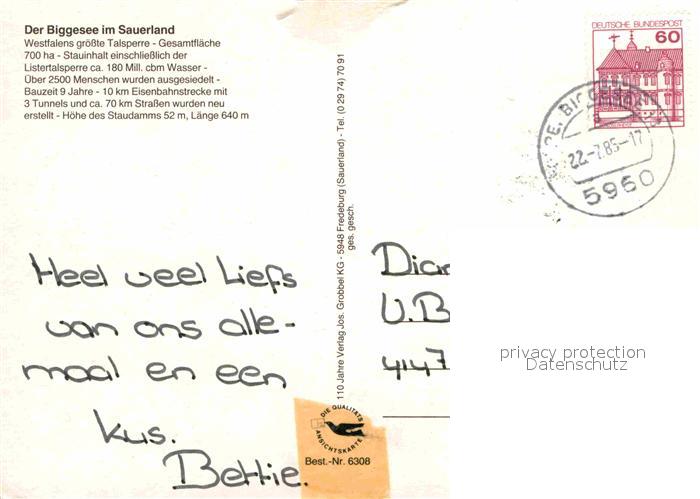 Der Biggesee im Sauerland
Westfalens größte Talsperre - Gesamtfläche
700 ha - Stauinhalt einschließlich der
Listertalsperre ca. 180 Mill. cbm Wasser -
Über 2500 Menschen wurden ausgesiedelt -
Bauzeit 9 Jahre - 10 km Eisenbahnstrecke mit
3 Tunnels und ca. 70 km Straßen wurden neu
erstellt - Höhe des Staudamms 52 m, Länge 640 m
Heel veel Liefs
van ons alle-
maal en een
kus.
Bettie.
110 Jahre Verlag Jos. Grobbel KG - 5948 Fredeburg (Sauerland) - Tel. (0 29 74) 70 91
ges. gesch.
DIE QUALITÄTS
ANSICHTSKARTE
Best.-Nr. 6308
DEUTSCHE BUNDESPOST
60
22.-7.85.-17
5960
Dia
U.B
4147
privacy protection
Datenschutz